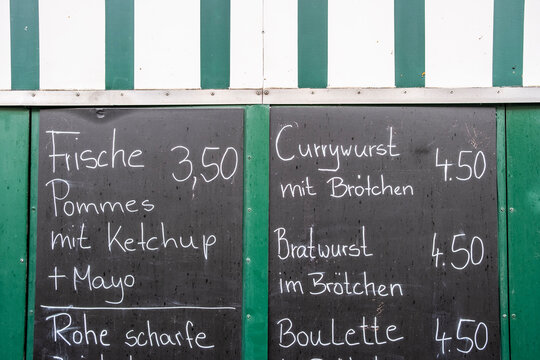 Frische 3,50
Pommes
mit Ketchup
+ Mayo
Rohe scharfe
Currywurst 4.50
mit Brötchen
Bratwurst 4.50
im Brötchen
Boulette 4.50